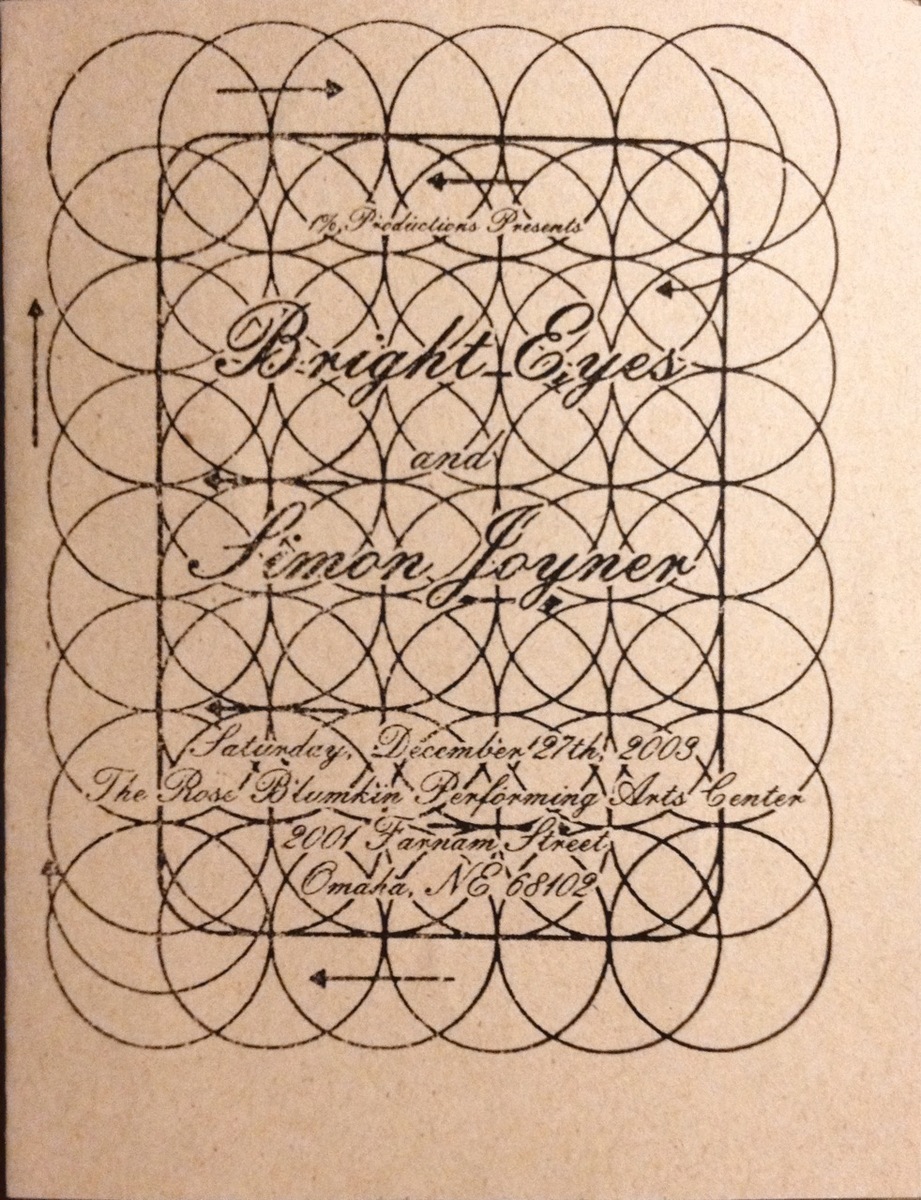 1% Productions Presents
Bright Eyes
and
Simon Joyner
Saturday, December 27th, 2003
The Rose Blumkin Performing Arts Center
2001 Farnam Street
Omaha, NE 68102